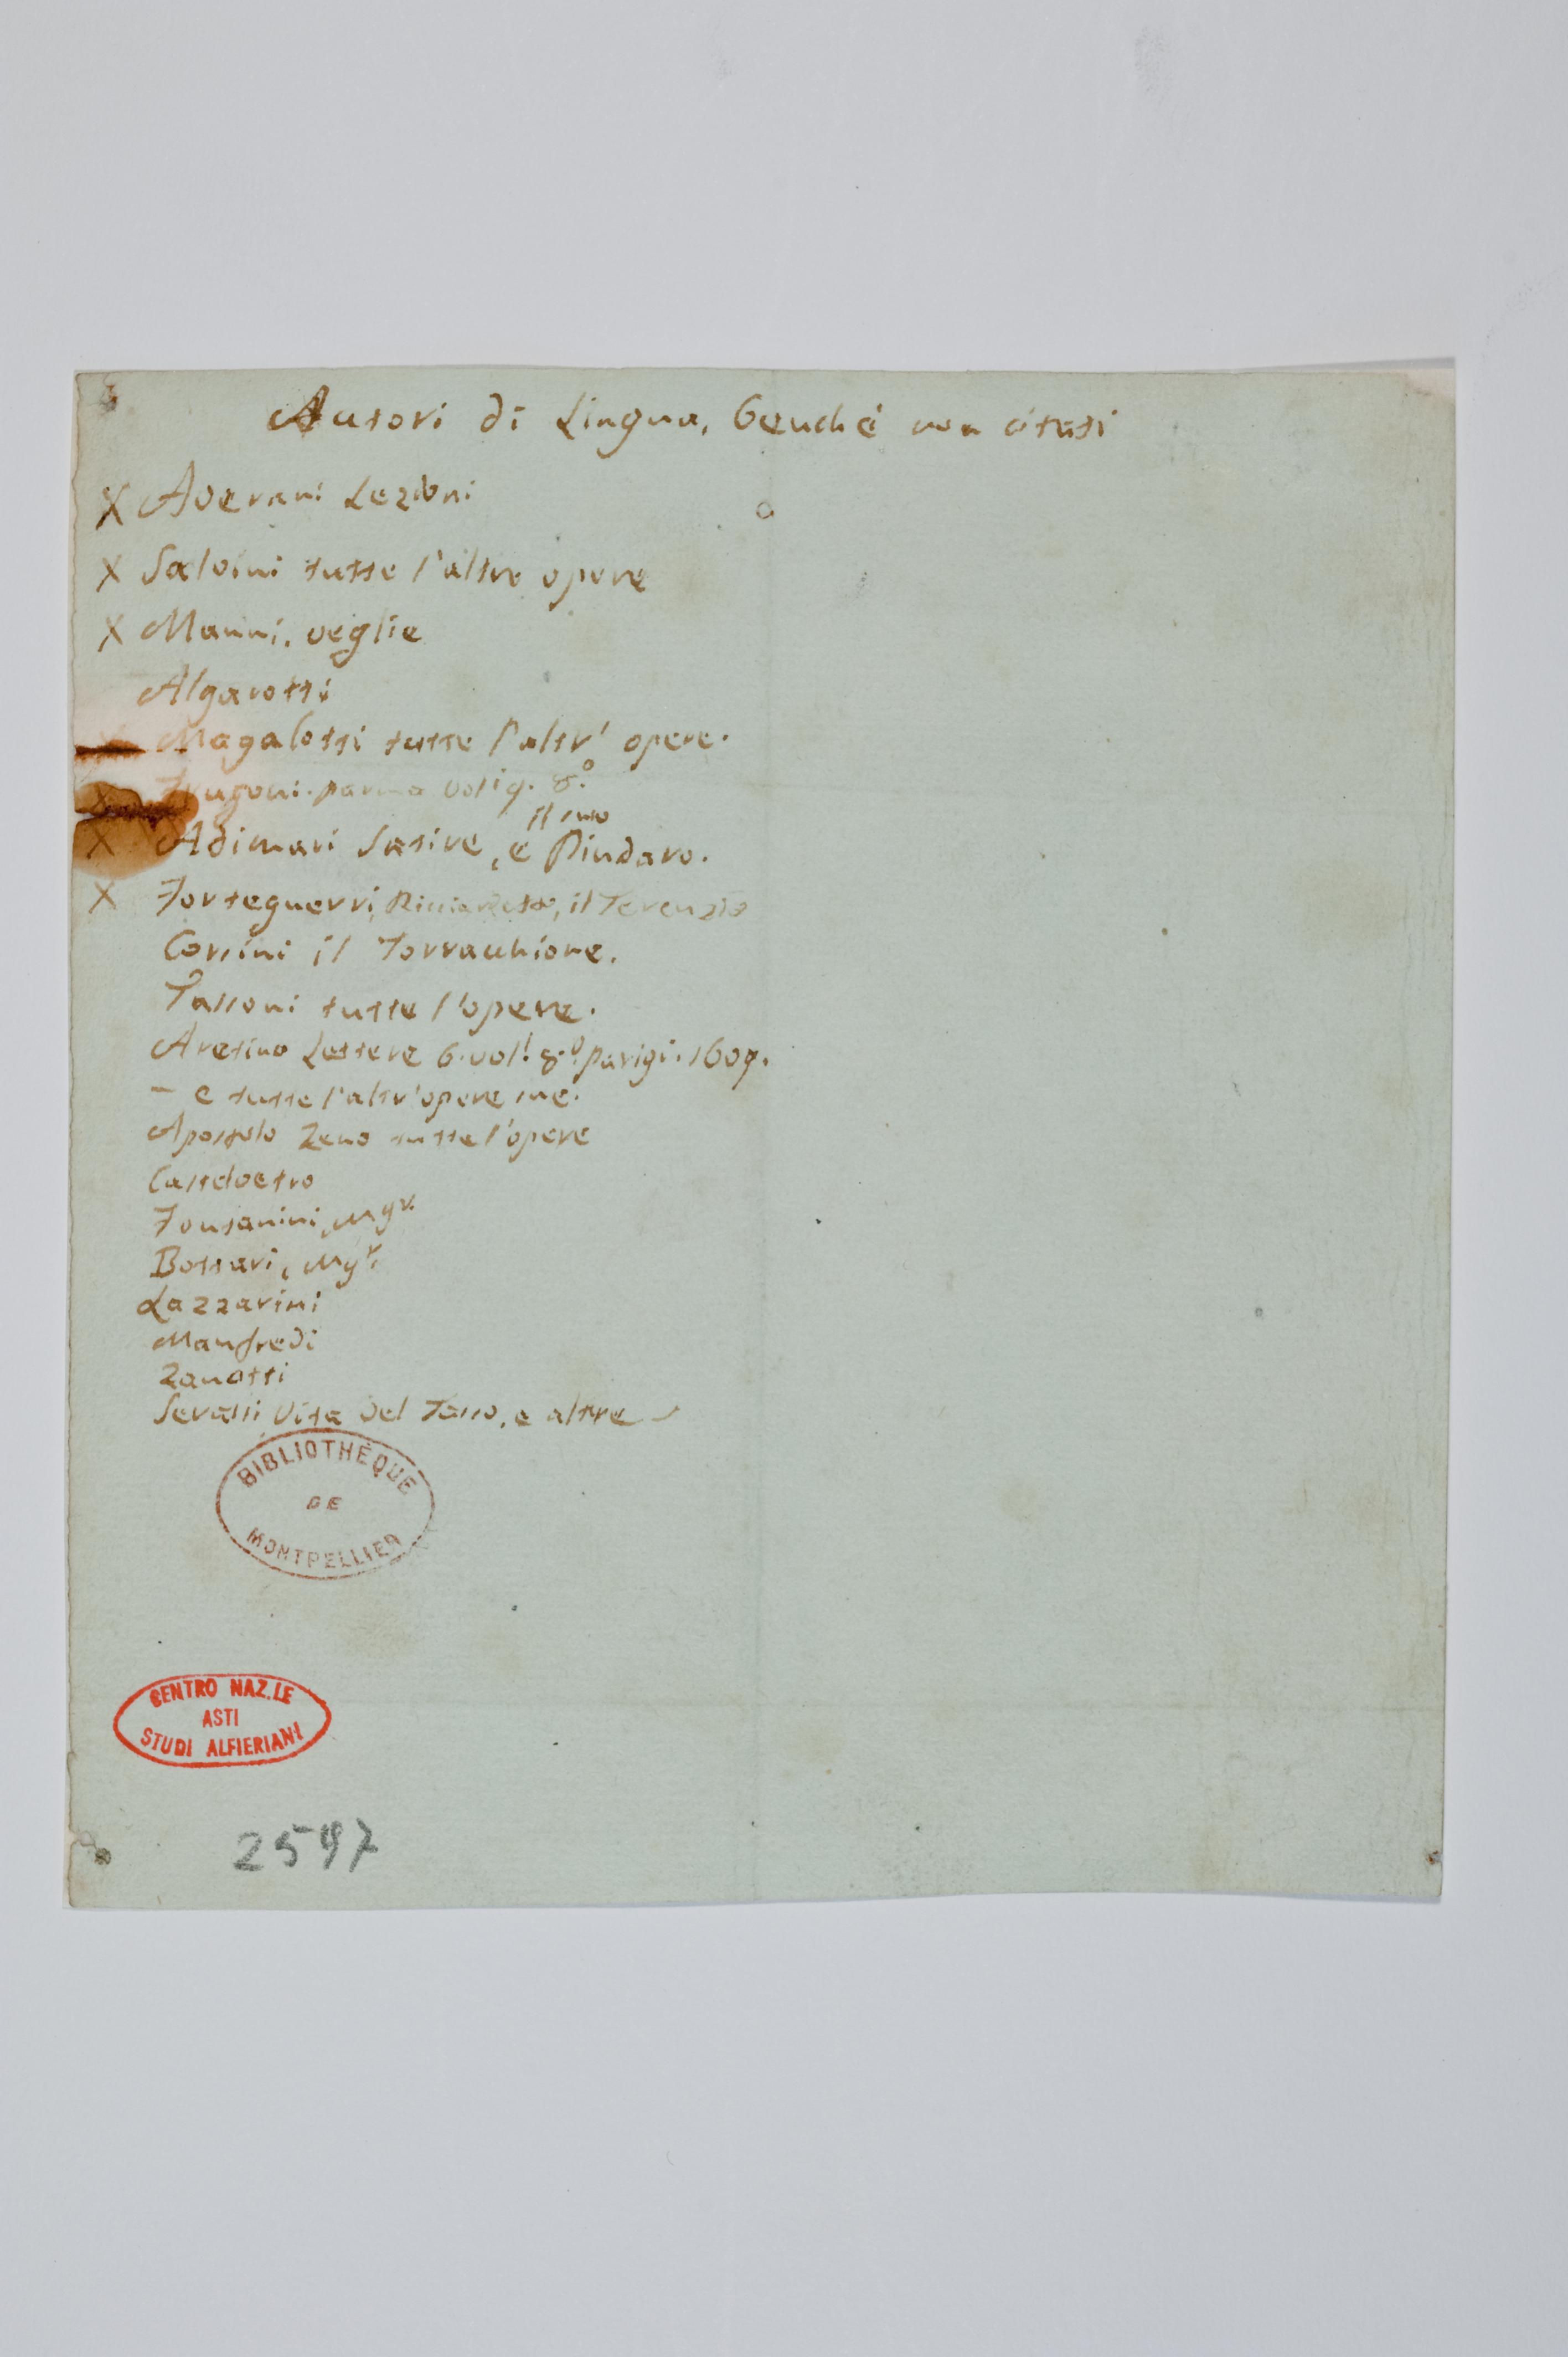 Autori di Lingua, benchè non citati
X Averani Lezioni
X Salvini tutte l'altre opere
X Manni, veglie
Algarotti
X Magalotti tutte l'altr' opere.
X Frugoni. parma vol i 9. 8.º
il suo
X Adimari Satire, e Pindaro.
X Forteguerri, Ricciardetto, il Terenzio
Corsini il Torracchione.
Tassoni tutte l'opere.
Aretino Lettere 6. vol! 8.º parigi. 1609.
– e tutte l'altr'opere sue.
Apostolo Zeno tutte l'opere
Castelvetro
Fontanini, Mgr.
Bottari, Mgr.
Lazzarini
Manfredi
Zanotti
Serassi Vita del Tasso, e altre –
BIBLIOTHÈQUE
DE
MONTPELLIER
CENTRO NAZ.LE
ASTI
STUDI ALFIERIANI
2597